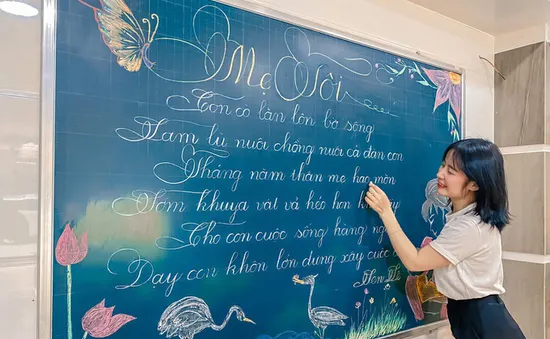 Mẹ Tôi
Con cò lặn lội bờ sông
Tam lũ nuôi chồng nuôi cả đàn con
Tháng năm thân mẹ hao mòn
Sớm khuya vất vả héo hon
Cho con cuộc sống hàng
Dạy con khôn lớn dựng xây cuộc